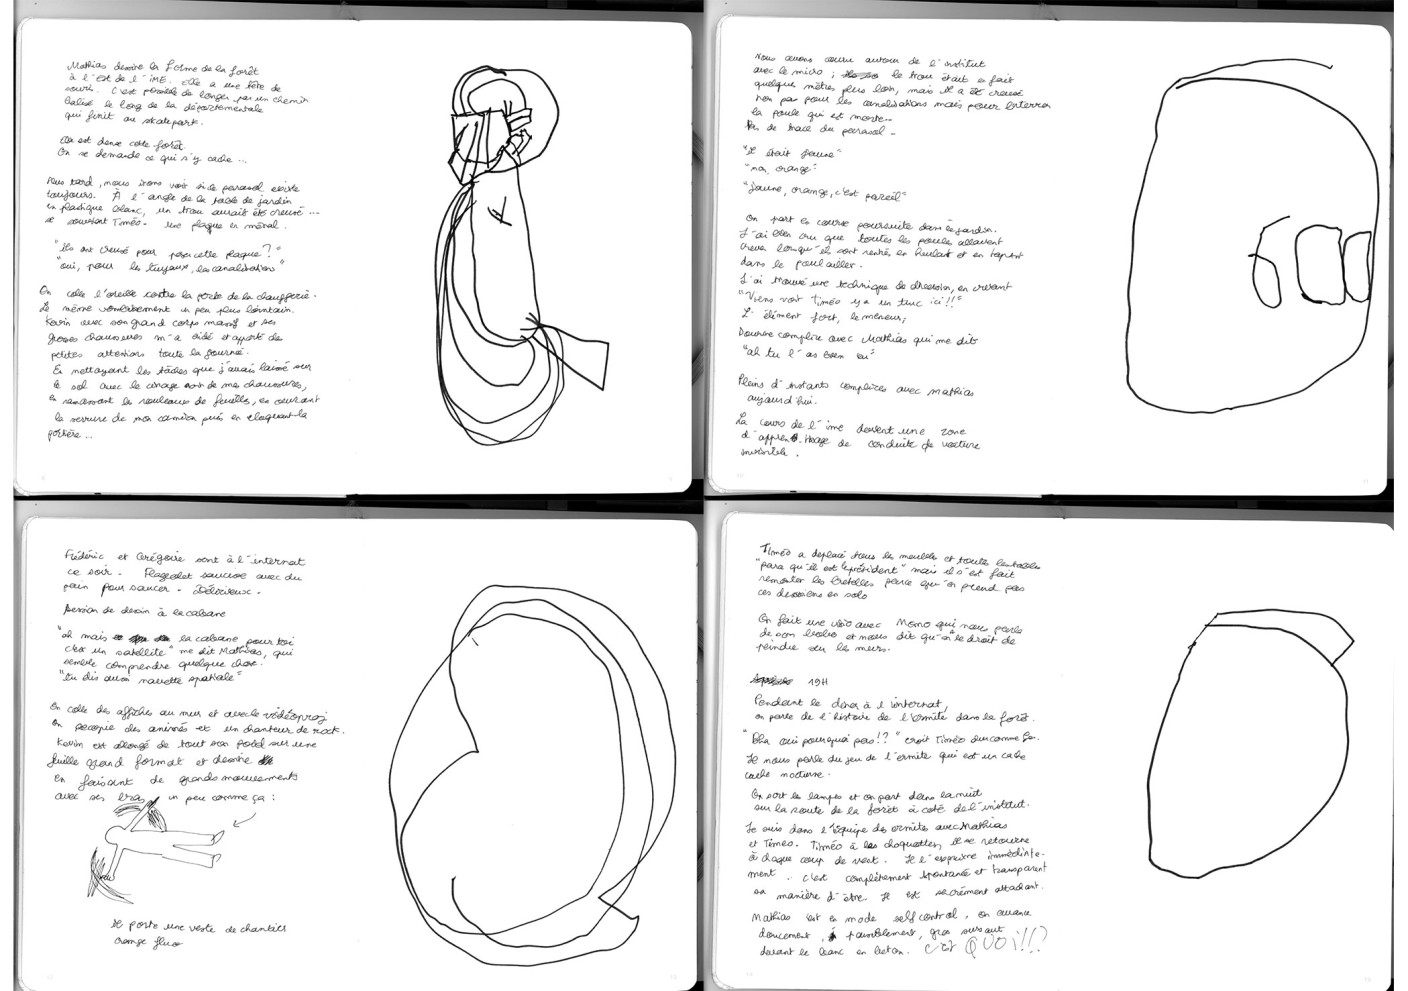 Mathias dessine la forme de la forêt
à l'Est de l'IME. Elle a une tête de
souris. C'est possible de longer par un chemin
balisé le long de la départementale
qui finit au skatepark.
Elle est dense cette forêt.
On se demande ce qui s'y cache ...
Plus tard, nous irons voir si le parasol existe
toujours. À l'angle de la table de jardin
en plastique blanc, un trou aurait été creusé ...
se souvient Timéo. une plaque en métal.
"ils ont creusé pour poser cette plaque ?"
"oui, pour les tuyaux, les canalisations"
On colle l'oreille contre la porte de la chaufferie.
Le même vombrissement un peu plus lointain.
Kevin avec son grand corps massif et ses
grosses chaussures m'a aidé et apporté de
petites attentions toute la journée.
En nettoyant les tâches que j'avais laissé sur
le sol avec le cirage noir de mes chaussures,
en ramassant les rouleaux de feuilles, en ouvrant
la serrure de mon camion puis en claquant la
portière ...
Nous avons couru autour de l'institut
avec le micro ; le trou était en fait
quelques mètres plus loin, mais il a été creusé
non pas pour les canalisations mais pour enterrer
la poule qui est morte..
Pas de trace du parasol -
"Il était jaune"
"non, orange"
"Jaune, orange, c'est pareil"
On part en course poursuite dans le jardin.
J'ai bien cru que toutes les poules allaient
crever lorsqu'ils sont rentrés en hurlant et en tapant
dans le poulailler.
J'ai trouvé une technique de diversion, en criant
"Viens voir Timéo y a un truc ici !!"
L'élément fort, le meneur,
Devenue complice avec Mathias qui me dit
"ah tu l'as bien eu"
Pleins d'instants complices avec mathias
aujourd'hui.
La cours de l'ime devient une zone
d'apprentissage de conduite de voiture
invisible.
Frédéric et Grégoire sont à l'internat
ce soir - Flageolet saucisse avec du
pain pour saucer - Délicieux -
Session de dessin à la cabane
"ah mais la cabane pour toi
c'est un satellite" me dit Mathias, qui
semble comprendre quelque chose.
"tu dis aussi navette spatiale"
On colle des affiches au mur et avec le vidéoproj
on recopie des animés et un chanteur de rock.
Kevin est allongé de tout son poids sur une
feuille grand format et dessine
en faisant de grands mouvements
avec ses bras un peu comme ça :
Il porte une veste de chantier
orange fluo
Timéo a déplacé tous les meubles et toutes les tables
"parce qu'il est le président" mais il s'est fait
remonter les bretelles parce qu'on prend pas
ces décisions en solo
On fait une visio avec Momo qui nous parle
de son boulot et nous dit qu'on a le droit de
peindre sur les murs.
19H
Pendant le dîner à l'internat,
on parle de l'histoire de l'ermite dans la forêt.
"Bha oui pourquoi pas !?" croit Timéo dur comme fer.
Je nous parle du jeu de l'ermite qui est un cache
cache nocturne.
On sort les lampes et on part dans la nuit
sur la route de la forêt à côté de l'institut.
Je suis dans l'équipe des ermites avec Mathias
et Timéo. Timéo a les choquottes, il se retourne
à chaque coup de vent. Il l'exprime immédiate-
ment. c'est complètement spontané et transparent
sa manière d'être. Il est sacrément attachant.
Mathias est en mode self control, on avance
doucement, paisiblement, gros sursaut
devant le banc en béton. c'est QUOI !!?